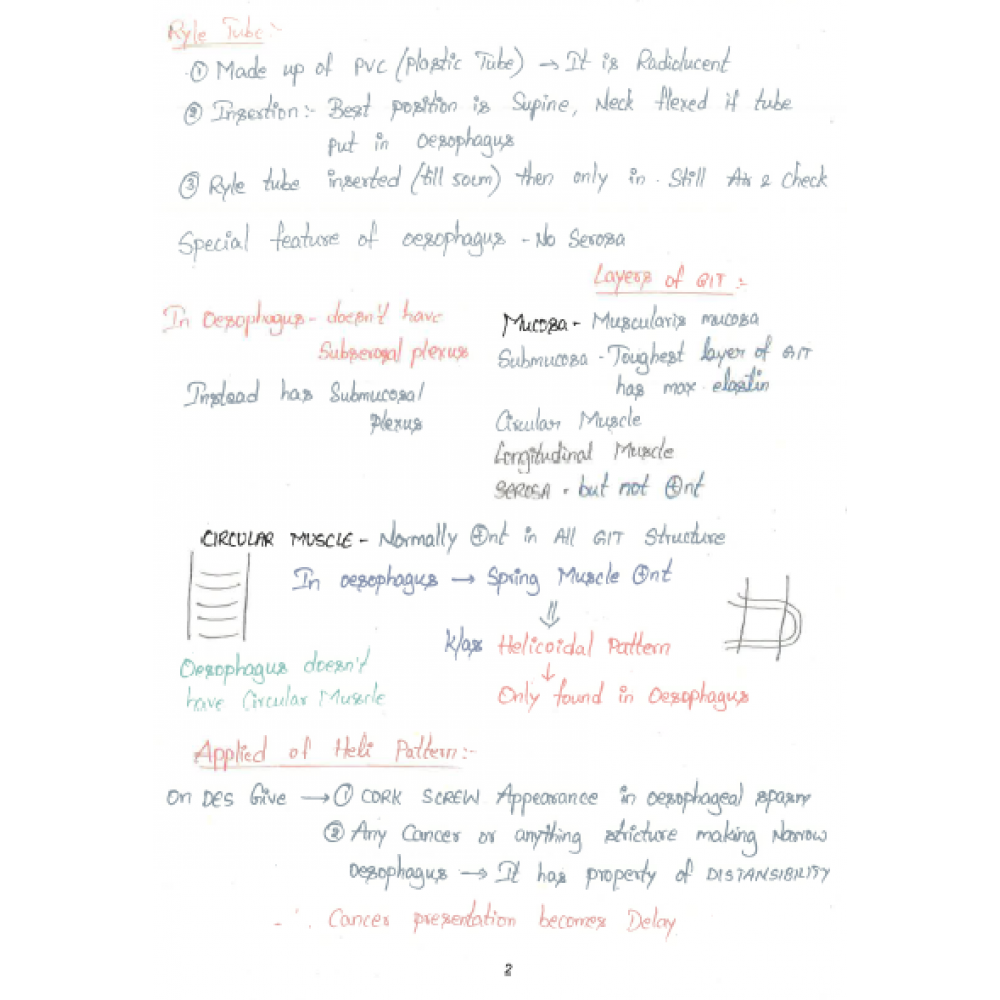 Ryle Tube :-
① Made up of PVC (Plastic Tube) → It is Radiolucent
② Insertion :- Best position is Supine, Neck flexed if tube
put in oesophagus
③ Ryle tube inserted (till 50cm) then only in Still Air & check
Special feature of oesophagus - No Serosa
Layers of GIT :-
In Oesophagus - doesn't have
Subserosal plexus
Instead has Submucosal
Plexus
Mucosa - Muscularis mucosa
Submucosa - Toughest layer of GIT
has max elastin
Circular Muscle
Longitudinal Muscle
SEROSA - but not ⊕nt
CIRCULAR MUSCLE - Normally ⊕nt in All GIT Structure
In oesophagus → Spring Muscle ⊕nt
⇓
k/as Helicoidal Pattern
↓
Only found in Oesophagus
Oesophagus doesn't
have Circular Muscle
Applied of Heli Pattern :-
On DES Give → ① CORK SCREW Appearance in oesophageal spasm
② Any Cancer or anything stricture making Narrow
Oesophagus → It has property of DISTANSIBILITY
∴ Cancer presentation becomes Delay
2